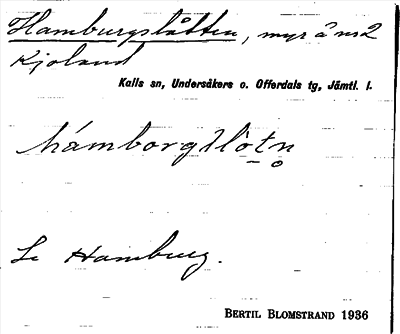 Hamburgslåtten, myr å nr 2
Kjoland
Kalls sn, Undersåkers o. Offerdals tg, Jämtl. l.
hámborgslòtn̥
Se Hamburg.
BERTIL BLOMSTRAND 1936